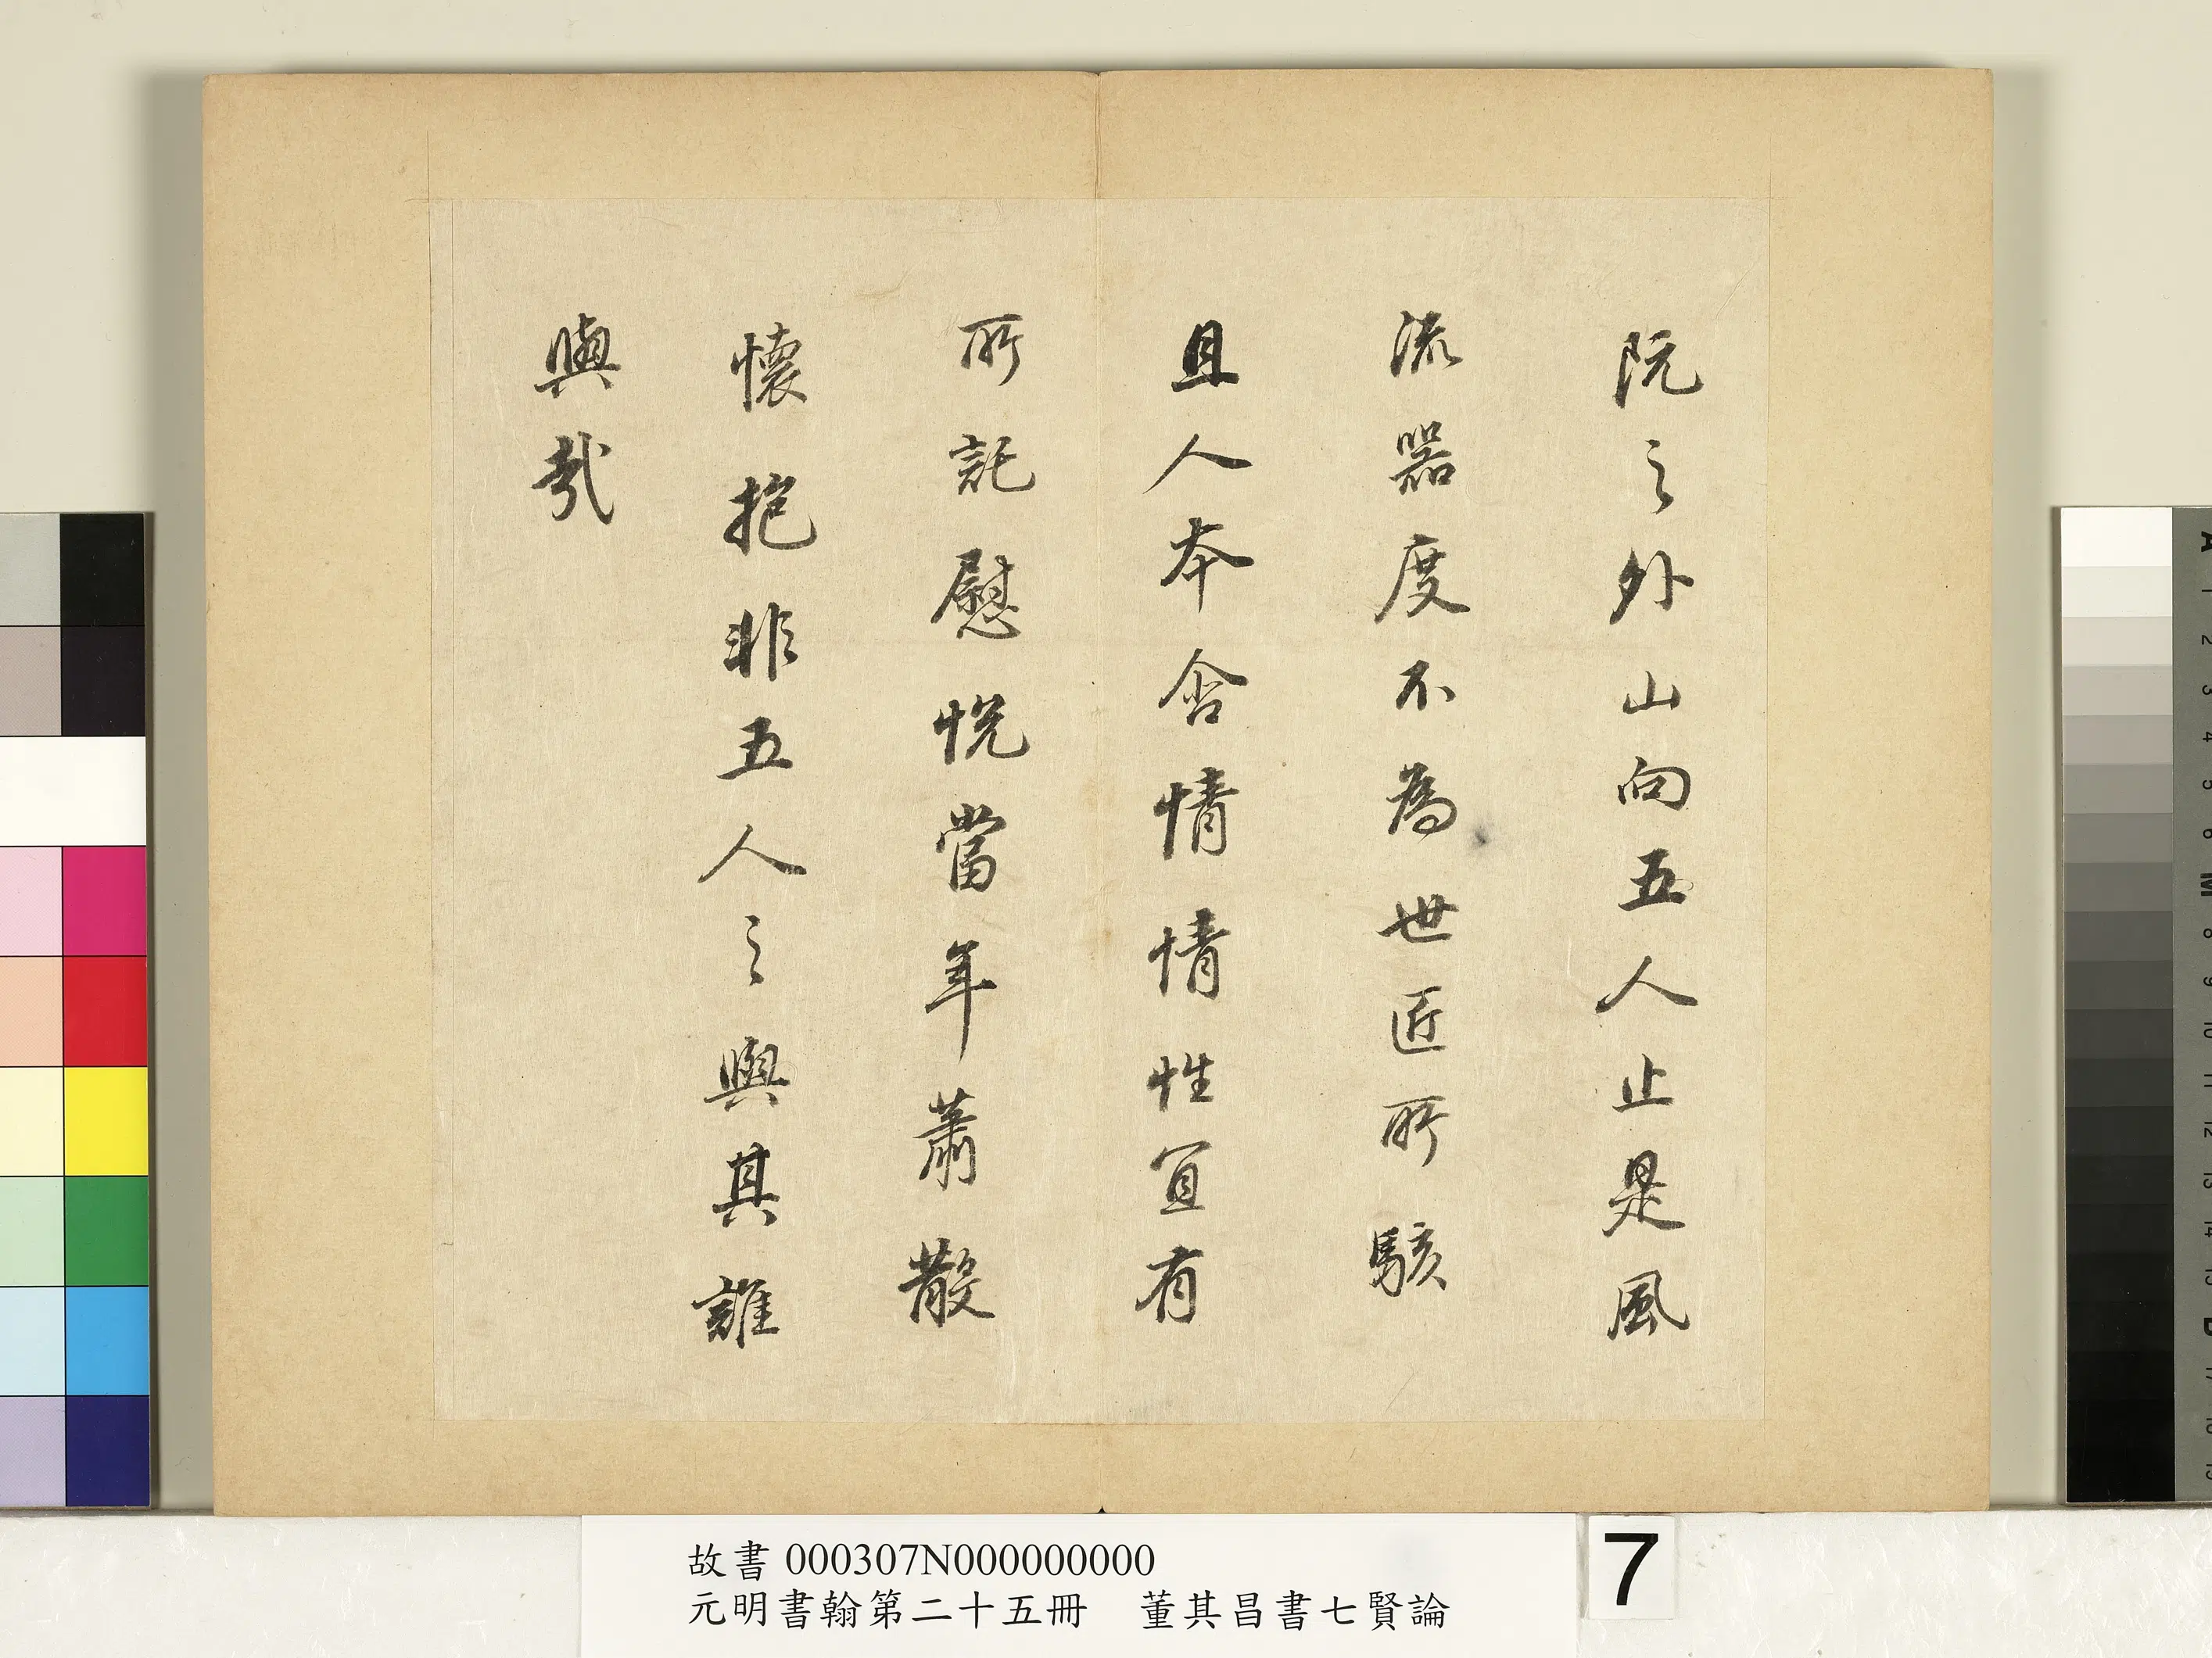 阮之外山向五人止是風
流器度不為世匠所駭
且人本含情情性宜有
所託慰悅當年蕭散
懷抱非五人之與其誰
與哉
故書 000307N000000000
元明書翰第二十五冊 董其昌書七賢論
7